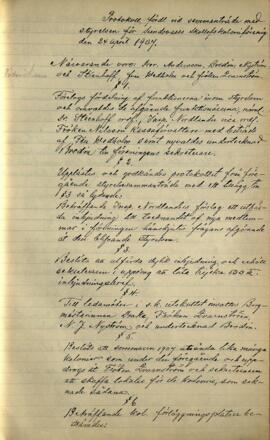 Protokoll fördt vid sammanträde med
styrelsen för Sundsvalls Skollofskoloniförening
den 24 april 1907.
Närvarande voro: Hr Andersson, Brodin, Nyström
och Stenhoff, Fru Wedholm och fröken Svanström
§ 1.
Företogs fördelning af funktionerna inom styrelsen
och omvaldes de afgående funktionärerna, näml.
Hr Stenhoff ordf., Insp. Nordlander vice ordf.,
Fröken Nilsson kassaförvaltare med biträde
af Fru Wedholm samt nyvaldes undertecknad
Brodin till föreningens sekreterare.
§ 2.
Upplästes och godkändes protokollet från före-
gående styrelsesammanträde med ett tillägg till
§ 3 så lydande:
Beträffande Insp. Nordlanders förslag att utfärda
inbjudning till tecknandet af nya medlem-
mar i föreningen hänskjöts frågans afgörande
till den tillträdande styrelsen.
§ 3.
Beslöts att utfärda dylik inbjudning, och erhöll
sekreteraren i uppdrag att låta trycka 150 st.
inbjudningsbref.
§ 4.
Till ledamöter i s.k. utskottet omvaltes Borg-
mästarinnan Brate, Fröken Svanström,
N. J. Nyström, och undertecknad Brodin.
§ 5.
Beslöts att sommaren 1907 utsända lika många
kolonier som under den föregående och upp-
drogs åt Fröken Svanström och sekreteraren
att skaffa lokaler för de kolonier, som sak-
nade sådana.
§ 6
Beträffande kol. förläggningsplatser be-
stämdes: